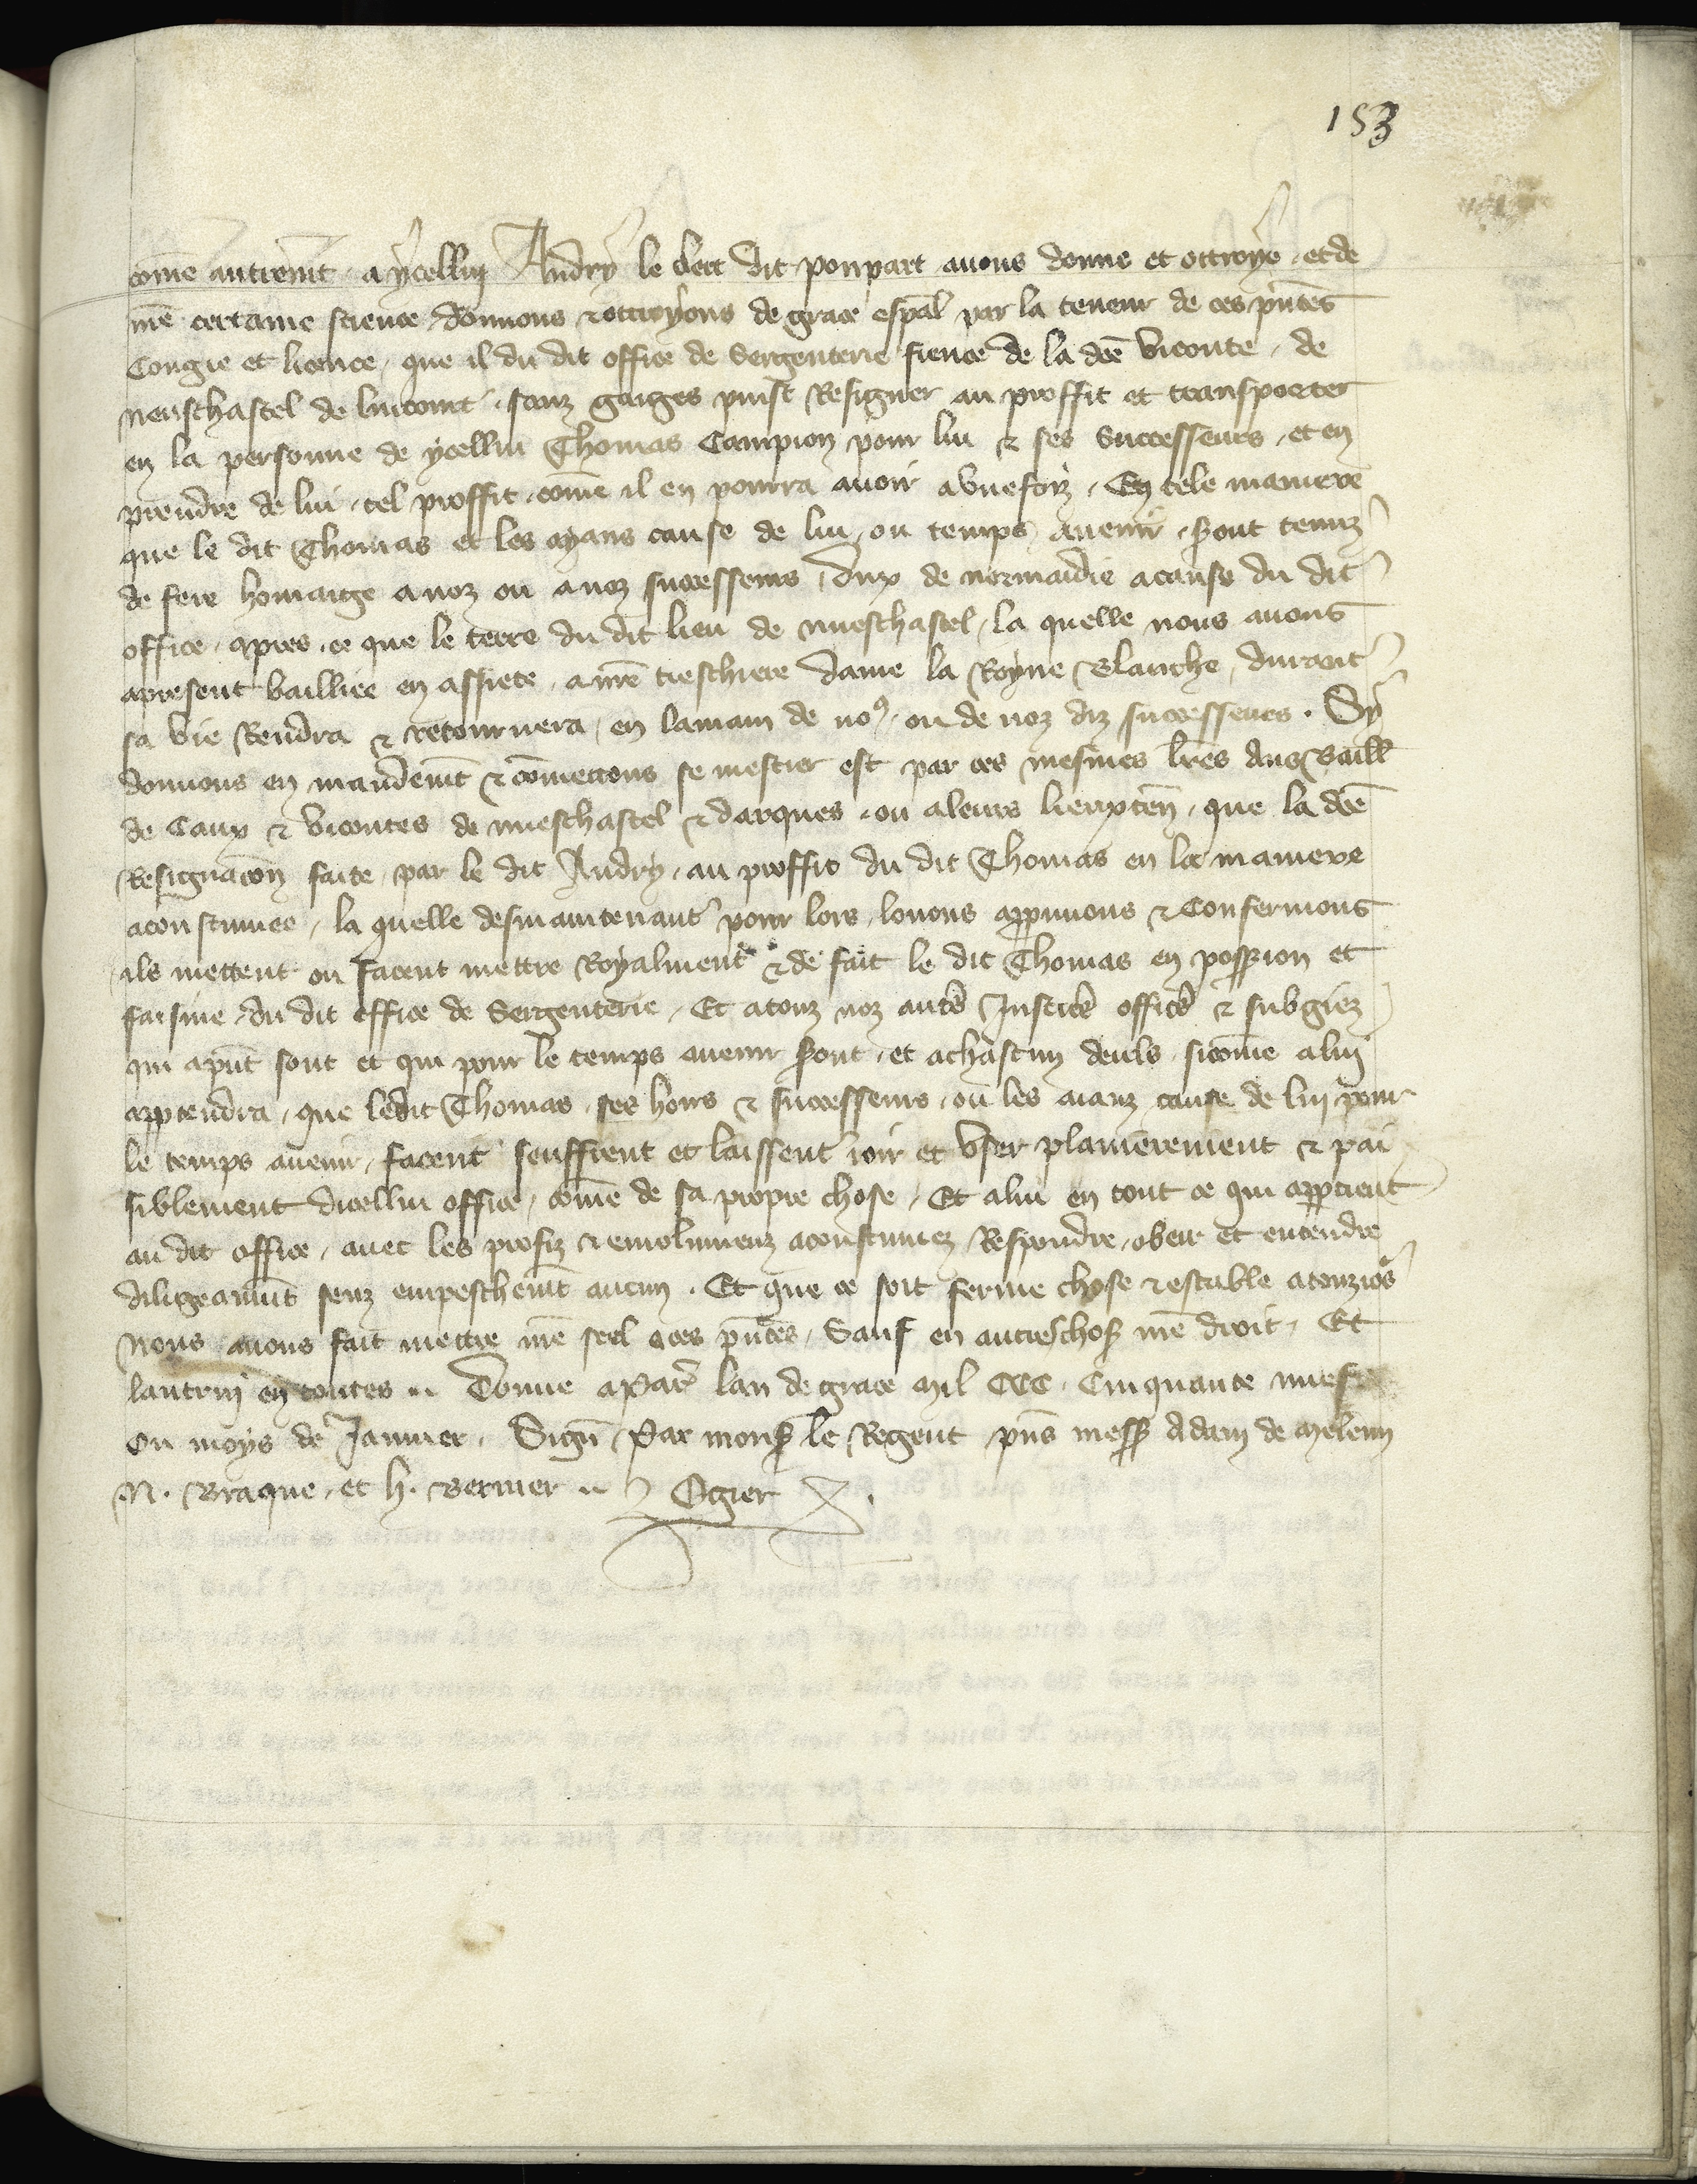 153
cōme autremēt a ycellui Andry le clerc dit ponpart auons donne et ottroye et de
nr̄e certaine science donnons & ottroyons de grace esp̄al par la teneur de ces pn̄tes
Congie et licence que il du dit office de Sergenterie fieuee de la dc̄e viconte de
neufchastel de luicomt senz gaiges puist Resigner au proffit et transporter
en la personne de ycellui Thomas Campion pour lui & ses Successeurs et en
prendre de lui tel proffit cōme il en pourra auoir a vnefoiz En tele maniere
que le dit Thomas et les ayans cause de lui ou temps auenir seront tenuz
de fere hommaige a noz ou a noz successeurs Dux de normandie a cause du dit
office apres ce que le terre du dit lieu de nuefchastel la quelle nous auons
apresent bailliee en assiete a nr̄e treschiere dame la Royne Blanche durant
sa vie Rendra & retournera en la main de noꝰ ou de noz diz successeurs . Sy
donnons en mandemēt & cōmettons se mestier est par ces mesmes lr̄es aus Baill
de Caux & vicontes de nuefchastel & darques ou a leurs lieuxten̄ que la dc̄e
Resignacōn faite par le dit Andry au proffit du dit Thomas en la maniere
acoustumee la quelle desmaintenant pour lors louons appruuons & Confermons
ils mettent ou facent mettre Royalment & de fait le dit Thomas en possession et
saisine du dit office de Sergenterie Et a touz noz autrēs Justicēs officēs & subgiez
qui a pn̄t sont et qui pour le temps auenir seront et a chascun deuls sicōme a lui
appartendra que le dit Thomas ses hoirs & successeurs ou les aianz cause de lui pour
le temps auenir facent seuffrent et laissent ioir et vser plainierement & pai
siblement dicellui office cōme de sa propre chose Et a lui en tout ce qui appartient
au dit office auec les profiz & emolumenz acoustumez Respondre obeir et entendre
diligeaumēt senz empeschemēt aucun . Et que ce soit ferme chose & estable a touziors
Nous auons fait mettre nr̄e seel a ces pn̄tes Sauf en autres choses nr̄e droit Et
lautrui en toutes .. Donne a Par̄ lan de grace mil CCC Cinquante nuef
ou moys de Januier . Sign̄ Par mons̄ le Regent pn̄s mess̄ Adam de meleun
N. Braque et h. Bernier .. Ogier